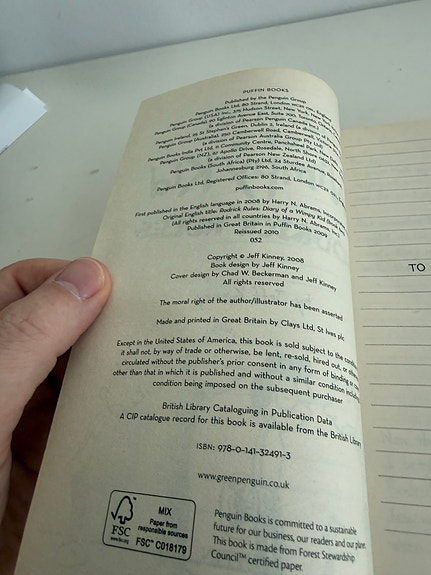 PUFFIN BOOKS
Published by the Penguin Group
Penguin Books Ltd, 80 Strand, London WC2R 0RL, England
Penguin Group (USA) Inc., 375 Hudson Street, New York, New
Penguin Group (Canada), 90 Eglinton Avenue East, Suite 700, Toronto,
(a division of Pearson Penguin Canada Inc.)
Penguin Ireland, 25 St Stephen's Green, Dublin 2, Ireland (a division
Penguin Group (Australia), 250 Camberwell Road, Camberwell,
(a division of Pearson Australia Group Pty Ltd)
Penguin Books India Pvt Ltd, 11 Community Centre, Panchsheel Park,
Penguin Group (NZ), 67 Apollo Drive, Rosedale, North Shore
(a division of Pearson New Zealand Ltd)
Penguin Books (South Africa) (Pty) Ltd, 24 Sturdee Avenue,
Johannesburg 2196, South Africa
Penguin Books Ltd, Registered Offices: 80 Strand, London WC2R 0RL,
puffinbooks.com
First published in the English language in 2008 by Harry N. Abrams, Incorporated
Original English title: Rodrick Rules: Diary of a Wimpy Kid
(All rights reserved in all countries by Harry N. Abrams, Inc.)
Published in Great Britain in Puffin Books 2009
Reissued 2010
052
Copyright © Jeff Kinney, 2008
Book design by Jeff Kinney
Cover design by Chad W. Beckerman and Jeff Kinney
All rights reserved
The moral right of the author/illustrator has been asserted
Made and printed in Great Britain by Clays Ltd, St Ives plc
Except in the United States of America, this book is sold subject to the
it shall not, by way of trade or otherwise, be lent, re-sold, hired out, or
circulated without the publisher's prior consent in any form of binding or
other than that in which it is published and without a similar condition including
condition being imposed on the subsequent purchaser
British Library Cataloguing in Publication Data
A CIP catalogue record for this book is available from the British Library
ISBN: 978-0-141-32491-3
www.greenpenguin.co.uk
FSC
www.fsc.org
MIX
Paper from
responsible sources
FSC™ C018179
Penguin Books is committed to a sustainable
future for our business, our readers and our planet.
This book is made from Forest Stewardship
Council™ certified paper.
TO